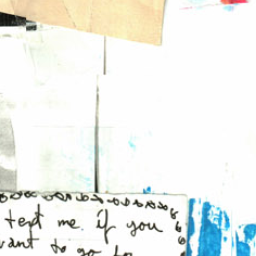 text me. if you
want to go to